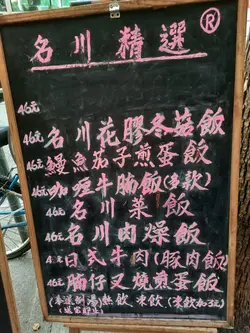 名川精選 ®
46元
46元 名川花膠冬菇飯
46元 鰻魚茄子煎蛋飯
46元 咖喱牛腩飯(多款)
46元 名川菜飯
46元 名川肉燥飯
46元 日式牛肉(豚肉飯)
46元 腩仔叉燒煎蛋飯
熱飲 凍飲 (凍飲加3元)